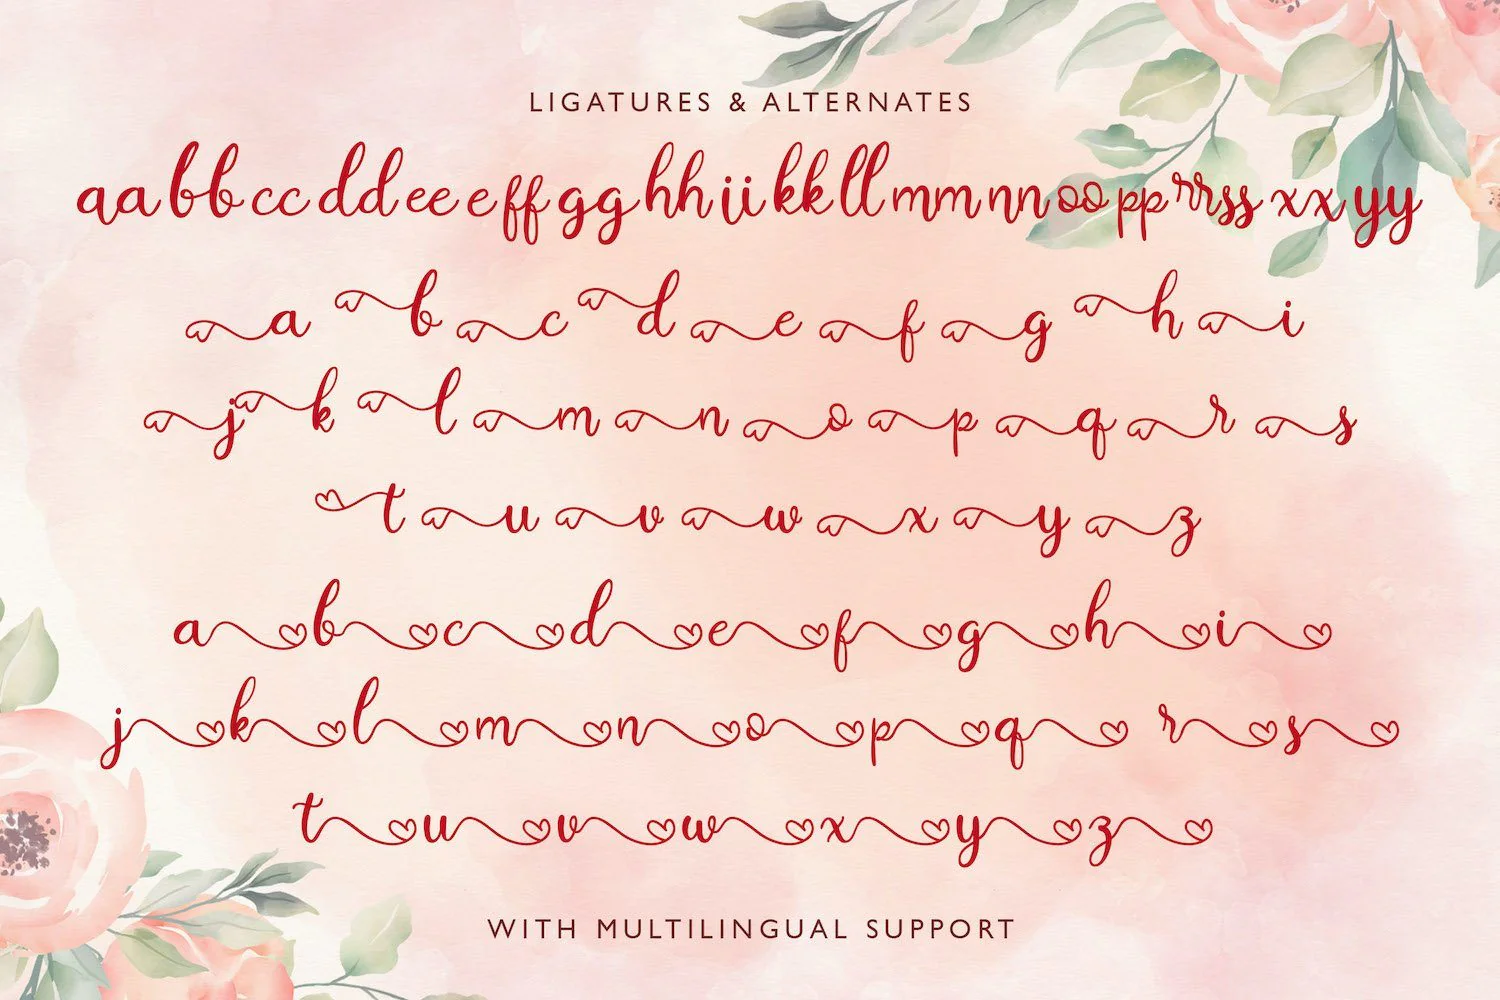 LIGATURES & ALTERNATES
aa bb cc dd ee eff gg hh ii kk ll mm nn oo pp rr ss xx yy
a b c d e f g h i
j k l m n o p q r s
t u v w x y z
a b c d e f g h i
j k l m n o p q r s
t u v w x y z
WITH MULTILINGUAL SUPPORT